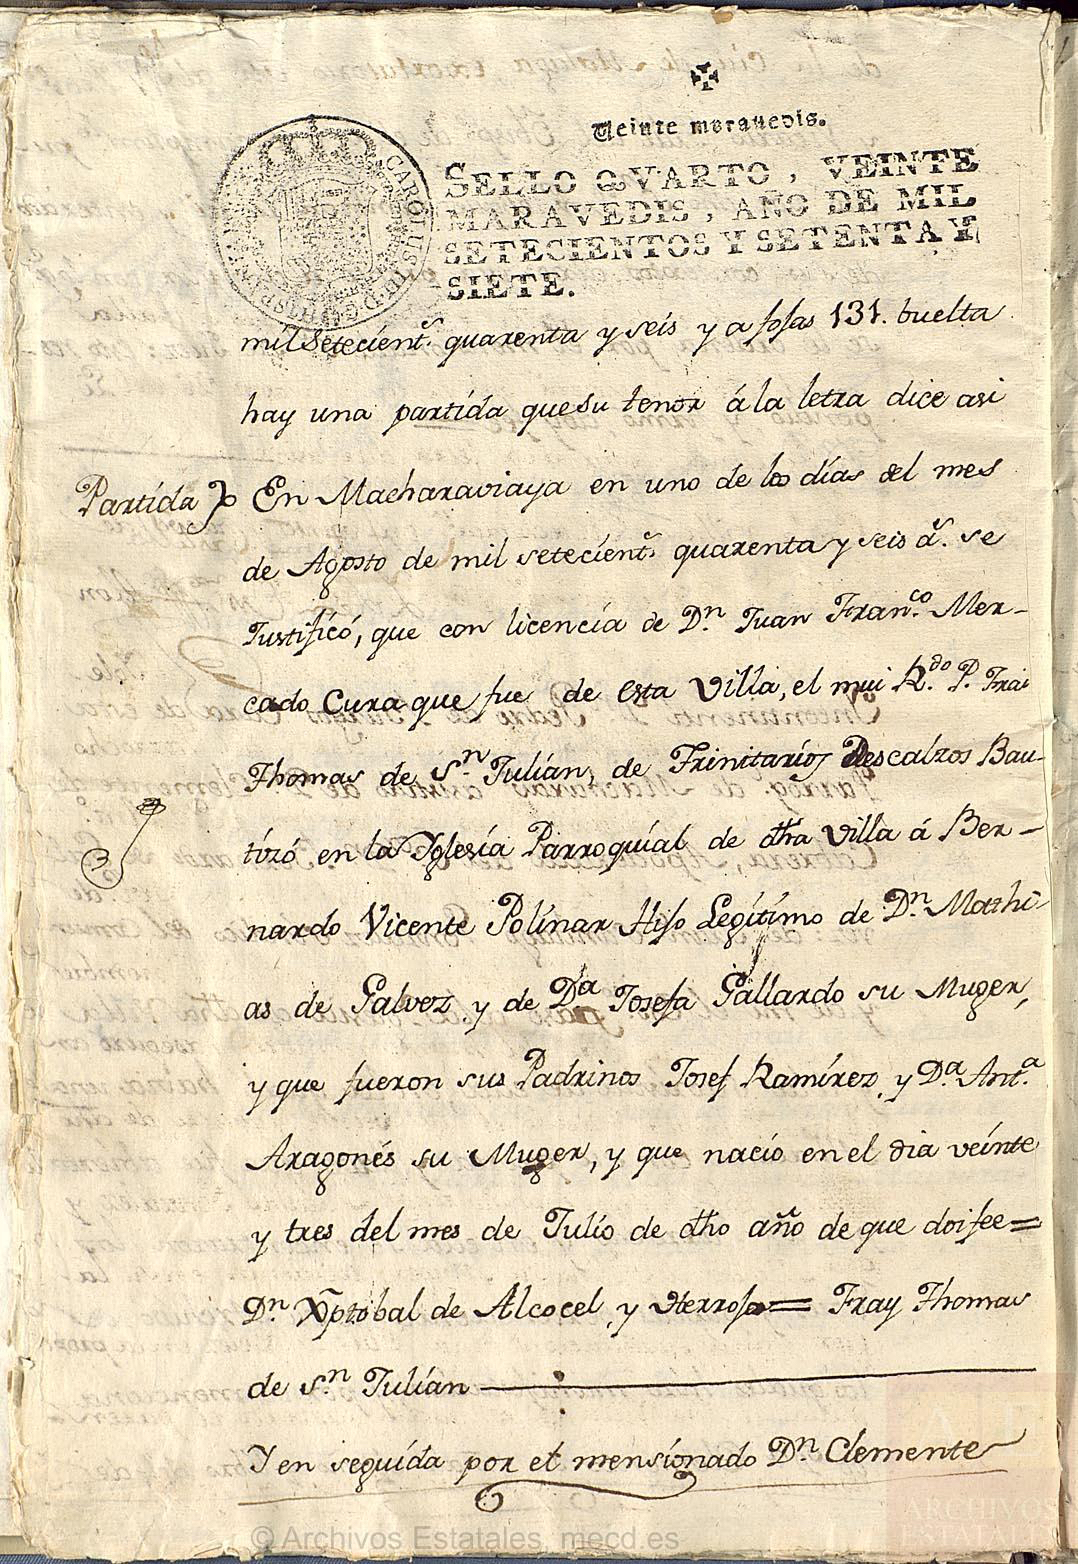 Veinte maravedis.
SELLO QVARTO, VEINTE
MARAVEDIS, AÑO DE MIL
SETECIENTOS Y SETENTA Y
SIETE.
CAROLUS III D G HISPAN
mil setecient.s quarenta y seis y a fojas 131. buelta
hay una partida que su tenor á la letra dice asi
Partida En Macharaviaya en uno de los días del mes
de Agosto de mil setecient.s quarenta y seis a.s se
Justificó, que con licencía de D.n Juan Fran.co Mer-
cado Cura que fue de esta Villa, el mui R.do P. Frai
Thomas de S.n Julián, de Trinitarios Descalzos Bau-
tizó en la Yglesía Parroquíal de dha Villa á Ber-
nardo Vicente Polínar Hijo Legítimo de D.n Mathí
as de Galvez, y de D.a Josefa Gallardo su Muger,
y que fueron sus Padrinos Josef Ramírez, y D.a Ant.a
Aragonés su Muger, y que nacío en el dia veínte
y tres del mes de Julío de dho año de que doi fee=
D.n Xptobal de Alcocel, y Herrosa= Fray Thomas
de S.n Julían
Y en seguída por el mensíonado D.n Clemente
© Archivos Estatales, mecd.es
ARCHIVOS
ESTATALES